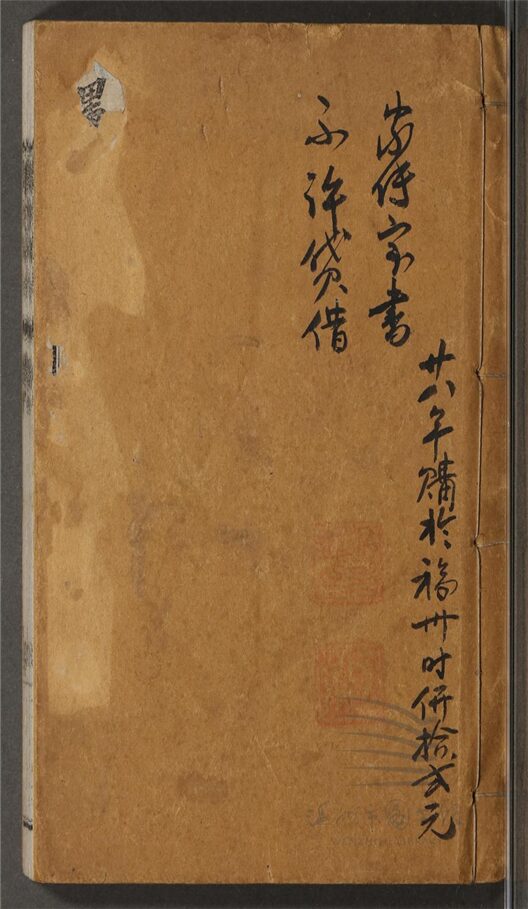 廿八年購於福州时併拾弍元
家传宝書
不許貸借